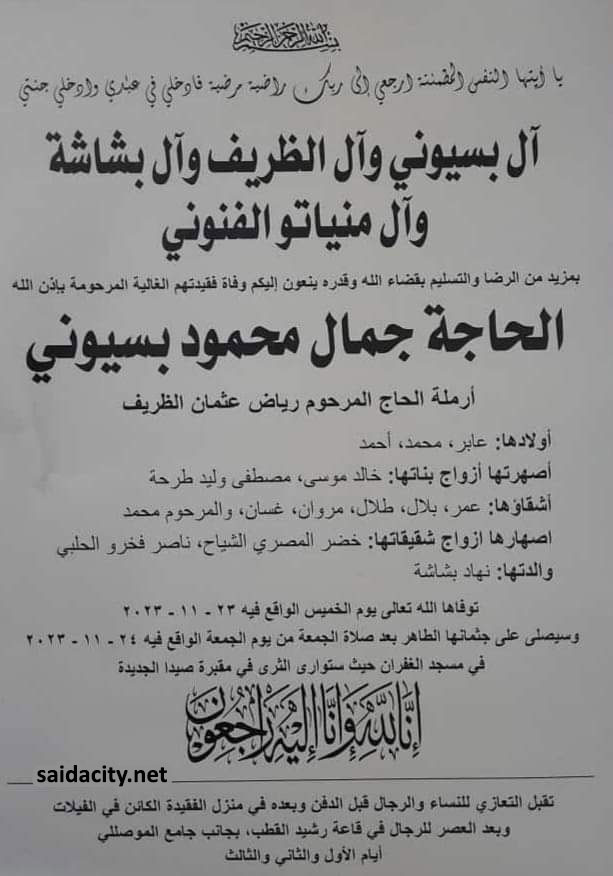 بسم الله الرحمن الرحيم
يا أيتها النفس المطمئنة ارجعي إلى ربك راضية مرضية فادخلي في عبادي وادخلي جنتي
آل بسيوني وآل الظريف وآل بشاشة
وآل منياتو الفنوني
بمزيد من الرضا والتسليم بقضاء الله وقدره ينعون إليكم وفاة فقيدتهم الغالية المرحومة بإذن الله
الحاجة جمال محمود بسيوني
أرملة الحاج المرحوم رياض عثمان الظريف
أولادها: عابر، محمد، أحمد
أصهرتها أزواج بناتها: خالد موسى، مصطفى وليد طرحة
أشقاؤها: عمر، بلال، طلال، مروان، غسان، والمرحوم محمد
اصهارها ازواج شقيقاتها: خضر المصري الشياح، ناصر فخرو الحلبي
والدتها: نهاد بشاشة
توفاها الله تعالى يوم الخميس الواقع فيه ٢٣ - ١١ - ٢٠٢٣
وسيصلى على جثمانها الطاهر بعد صلاة الجمعة من يوم الجمعة الواقع فيه ٢٤ - ١١ - ٢٠٢٣
في مسجد الغفران حيث ستوارى الثرى في مقبرة صيدا الجديدة
إنا لله وإنا إليه راجعون
saidacity.net
تقبل التعازي للنساء والرجال قبل الدفن وبعده في منزل الفقيدة الكائن في الفيلات
وبعد العصر للرجال في قاعة رشيد القطب، بجانب جامع الموصللي
أيام الأول والثاني والثالث